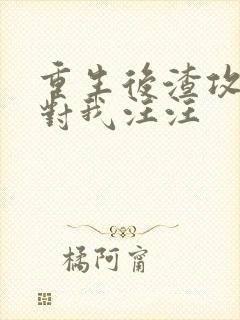 重生後渣攻
對我汪汪
橘阿甯